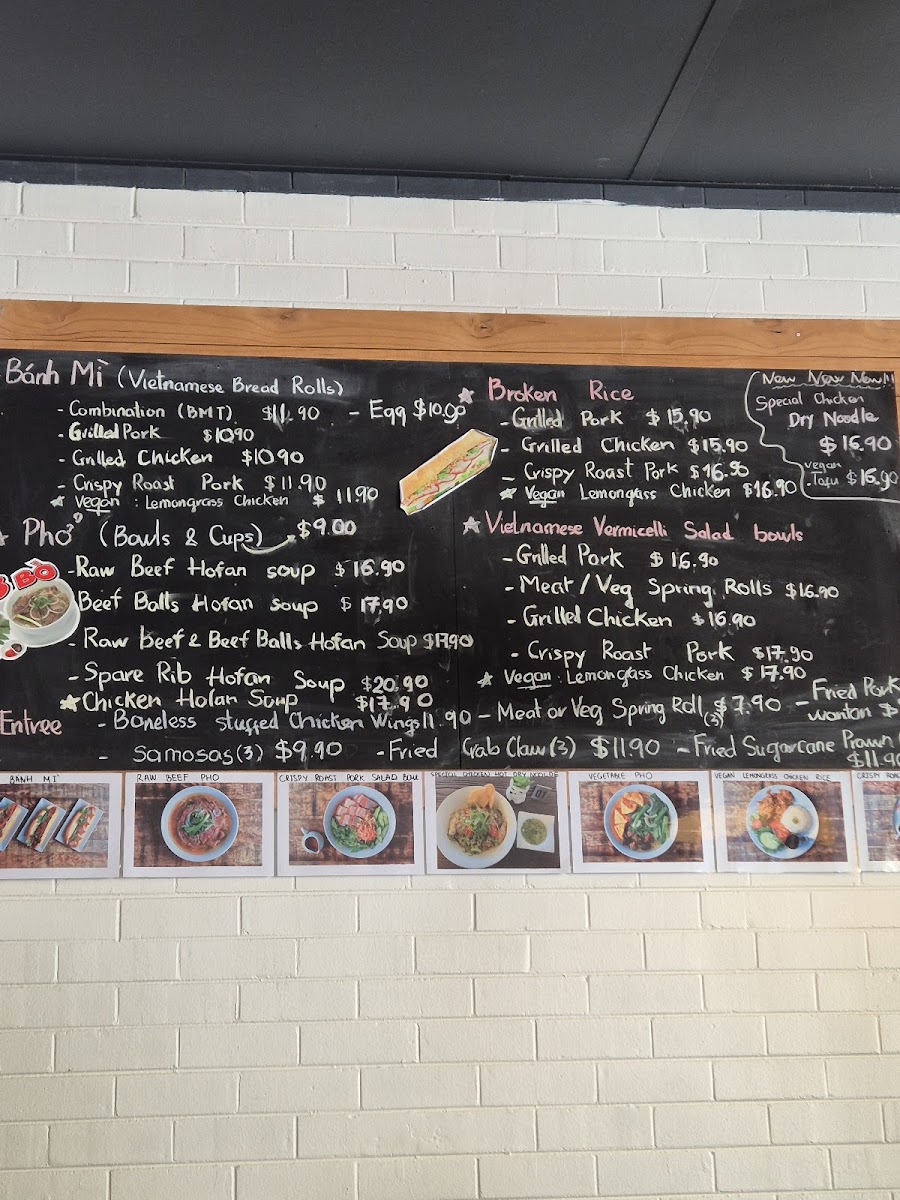 Bánh Mì (Vietnamese Bread Rolls)
- Combination (BMT) $11.90 - Egg $10.90
- Grilled Pork $10.90
- Grilled Chicken $10.90
- Crispy Roast Pork $11.90
Vegan : Lemongrass Chicken $ 11.90
Phở (Bowls & Cups) $9.00
BÒ
- Raw Beef Hofan soup $16.90
Beef Balls Hofan soup $ 17.90
- Raw beef & Beef Balls Hofan Soup $17.90
- Spare Rib Hofan Soup $20.90
Chicken Hofan Soup $17.90
Broken Rice
- Grilled Pork $15.90
- Grilled Chicken $15.90
- Crispy Roast Pork $16.90
Vegan Lemongrass Chicken $16.90
New New New!!
Special Chicken
Dry Noodle
$16.90
vegan
- Tofu $16.90
Vietnamese Vermicelli Salad bowls
- Grilled Pork $16.90
- Meat / Veg Spring Rolls $16.90
- Grilled Chicken $16.90
- Crispy Roast Pork $17.90
Vegan : Lemongrass Chicken $17.90
Entree - Boneless stuffed Chicken Wings 11.90 - Meat or Veg Spring Roll (3) $7.90 - Fried Pork
wontan $
- Samosas (3) $9.90 - Fried Crab Claw (3) $11.90 - Fried Sugarcane Prawn
$11.90
BANH MI
RAW BEEF PHO
CRISPY ROAST PORK SALAD BOWL
SPECIAL CHICKEN HOT DRY NOODLE
VEGETABLE PHO
VEGAN LEMONGRASS CHICKEN RICE
CRISPY